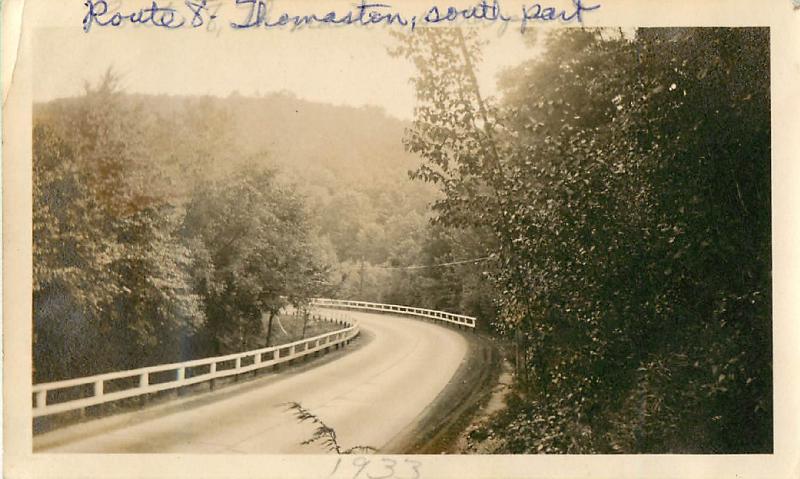 Route 8. Thomaston, south part
1933